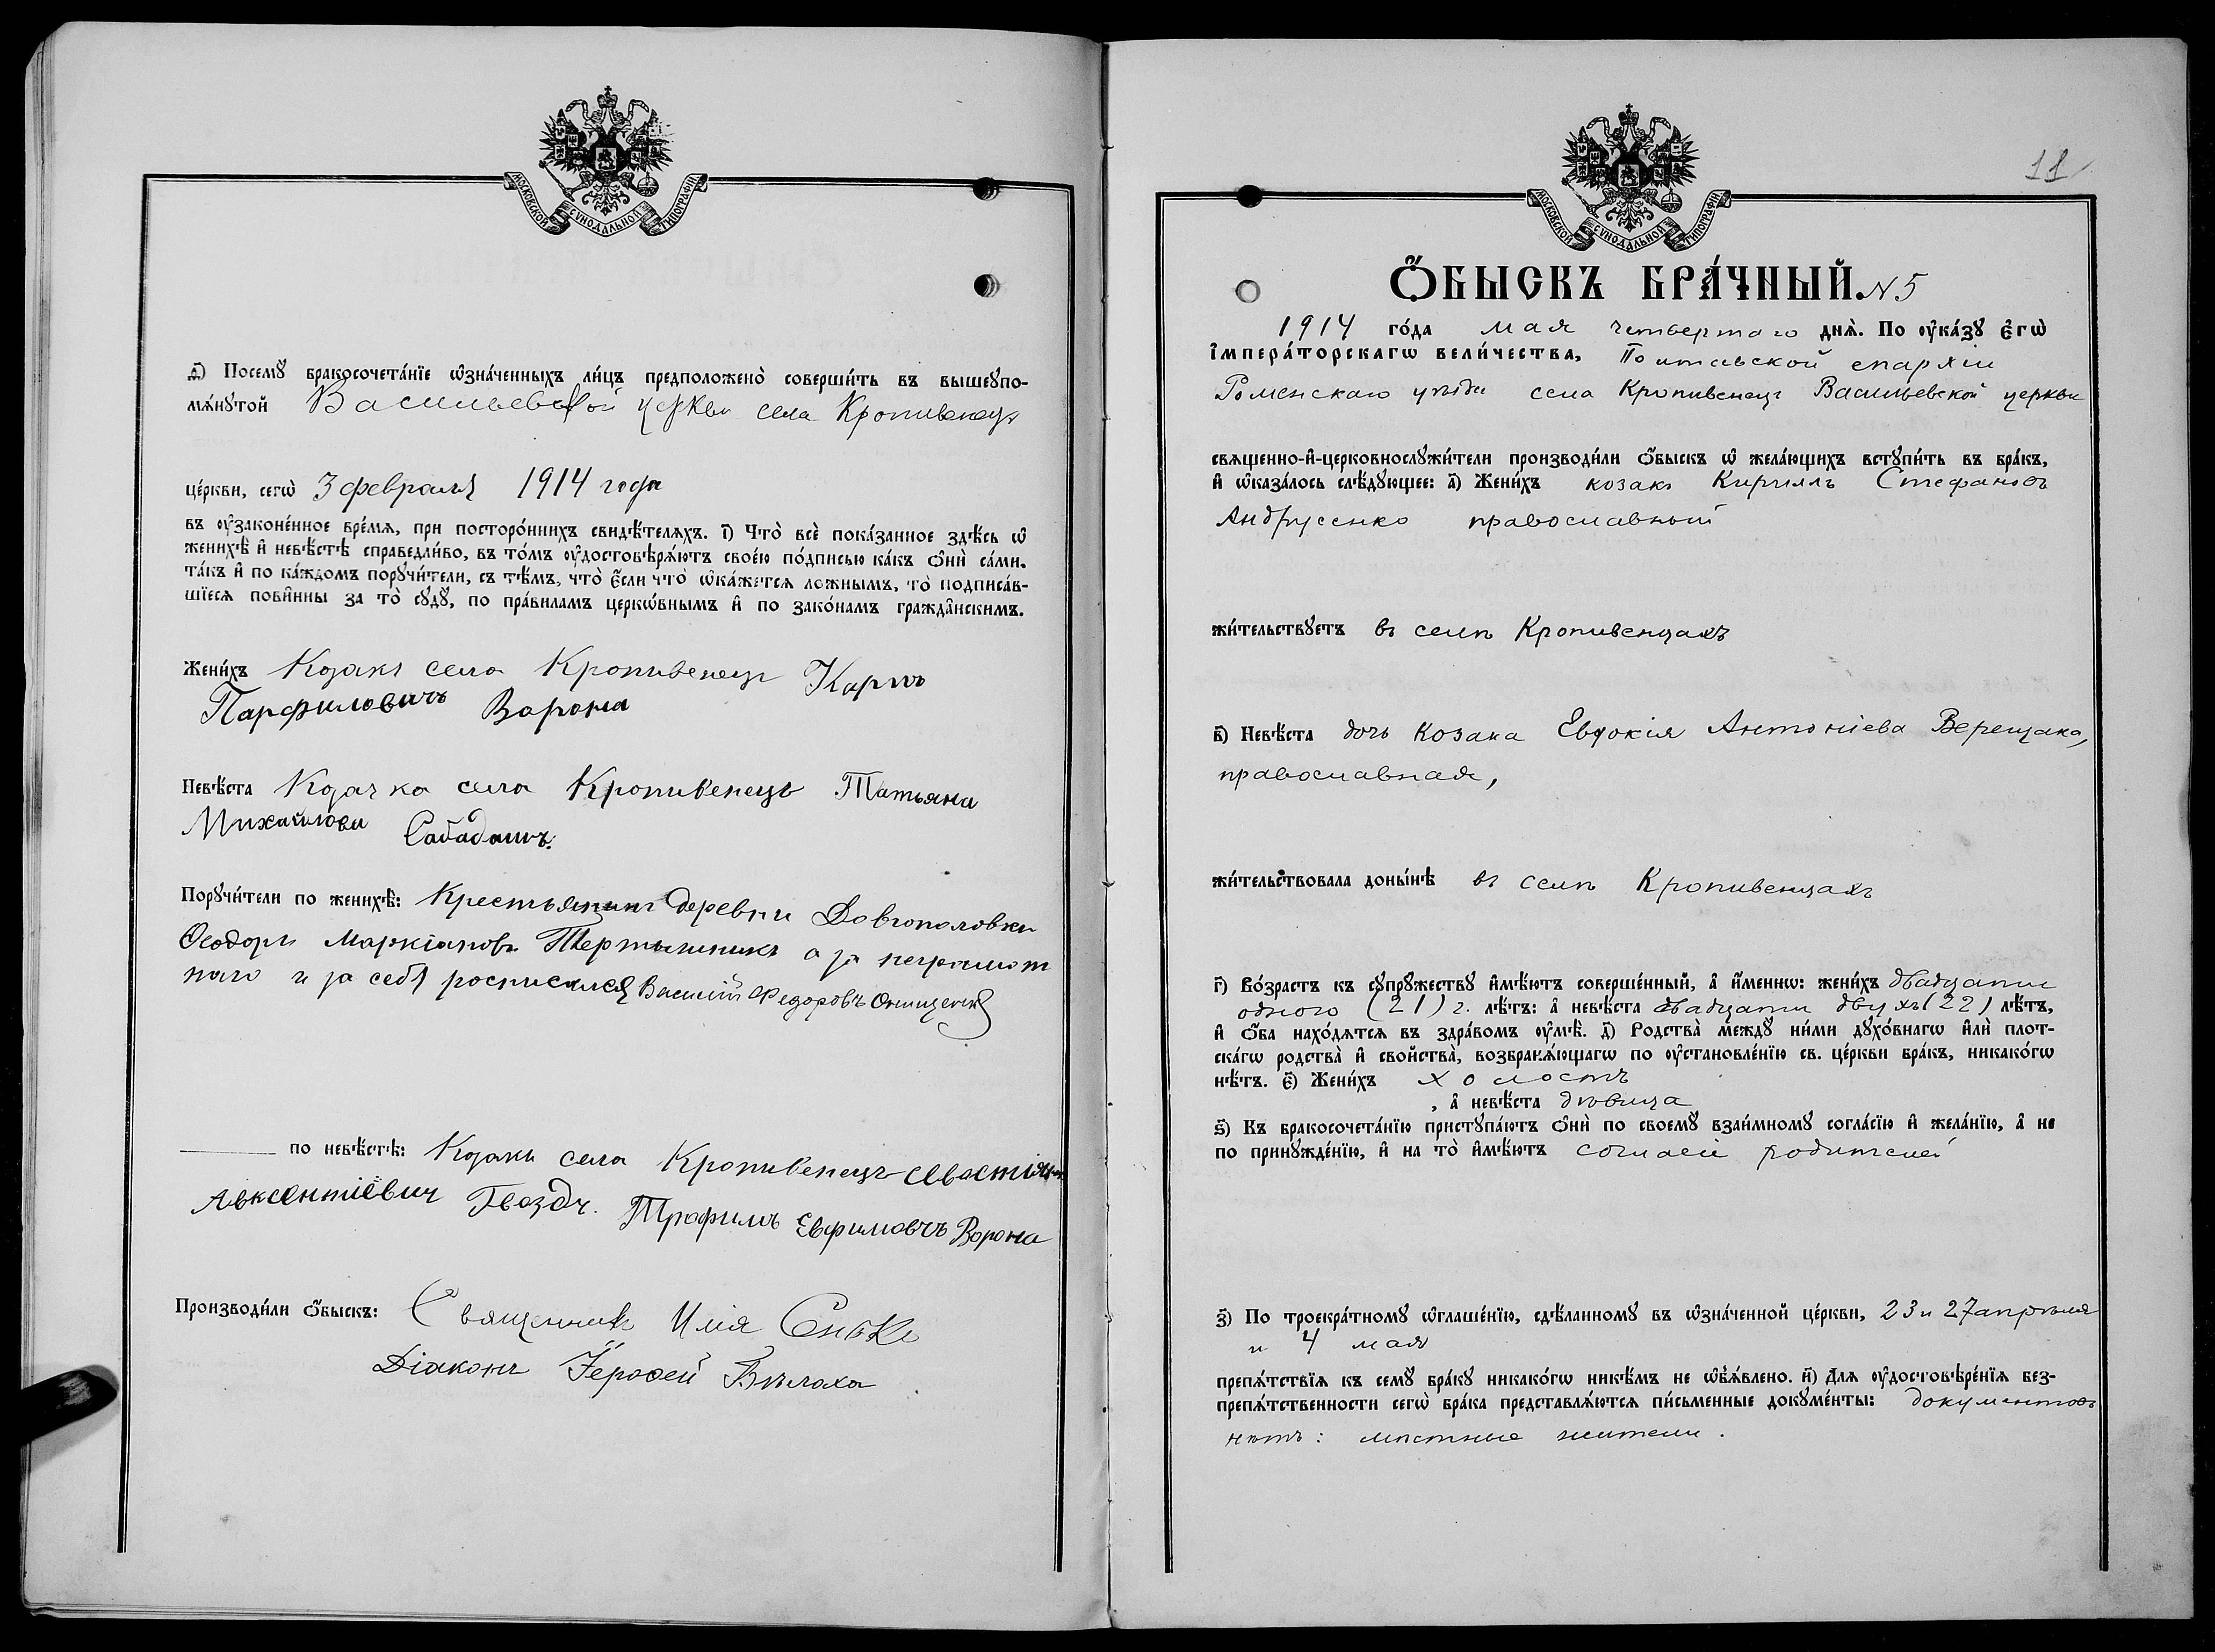 МОСКОВСКОЙ СѴНОДАЛЬНОЙ ТИПОГРАФІИ
д҃) Посемꙋ̀ бракосочета́нїе ѡ҆зна́ченныхъ ли́цъ предположено̀ соверши́ть въ вышеꙋпо-
мѧ́нꙋтой Васильевской церкви села Кропивенецъ
це́ркви, сегѡ̀ 3 февраля 1914 года
въ ᲂу҆законе́нное вре́мѧ, при посторо́ннихъ свидѣ́телѧхъ. і҃) Что̀ всѐ пока́занное здѣ́сь ѡ҆
женихѣ̀ и҆ невѣ́стѣ справедли́во, въ то́мъ ᲂу҆достовѣрѧ́ютъ свое́ю по́дписью ка́къ ѻ҆нѝ са́ми.
та́къ и҆ по ка́ждомъ порꙋчи́тели, съ тѣ́мъ, что̀ є҆́сли что̀ ѡ҆ка́жетсѧ ложнымъ, то̀ подписа́в-
шїесѧ пови́нны за то̀ сꙋдꙋ̀, по пра́виламъ церкѡ́внымъ и҆ по зако́намъ гражда́нскимъ.
Жени́хъ Козакъ села Кропивенецъ Карпъ
Парфиловичъ Ворона
Невѣ́ста Козачка села Кропивенецъ Татьяна
Михайлова Сабадашъ.
Порꙋчи́тели по женихѣ̀: Крестьянинъ деревни Довгополовки
Ѳеодоръ Маркіановъ Тертышникъ а за неграмот
наго и за себя росписался Василій Федоровъ Онищенко
по невѣ́стѣ: Козаки села Кропивенецъ Севастіянъ
Авксентіевич Гвоздь. Трофимъ Евфимовчъ Ворона
Производи́ли ѻ҆́быскъ: Священникъ Илія
Діаконъ Іероѳей Бѣлоха
МОСКОВСКОЙ СѴНОДАЛЬНОЙ ТИПОГРАФІИ
11
Ѻ҆́БЫСКЪ БРА́ЧНЫЙ. N 5
1914 го́да мая четвертаго днѧ̀. По ᲂу҆ка́зꙋ є҆гѡ̀
і҆мпера́торскагѡ вели́чества, Полтавской епархіи
Роменскаго уѣзда села Кропивенецъ Васильевской церкви
свѧщенно-и҆-церковнослꙋжи́тели производи́ли ѻ҆́быскъ ѡ҆ жела́ющихъ встꙋпи́ть въ бра́къ,
и҆ ѡ҆каза́лось слѣ́дꙋющее: а҃) Жени́хъ козакъ Кириллъ Стефановъ
Андрусенко православный
жи́тельствꙋетъ въ селѣ Кропивенцахъ
в҃) Невѣ́ста дочь козака Евдокія Антоніева Верещака,
православная,
жи́тельствовала доны́нѣ въ селѣ Кропивенцахъ
г҃) Во́зрастъ къ сꙋпрꙋ́жествꙋ и҆мѣ́ютъ соверше́нный, а҆ и҆́меннѡ: жени́хъ двадцати
одного (21) г. лѣ́тъ: а҆ невѣ́ста двадцати двухъ (22) лѣ́тъ,
и҆ ѻ҆́ба нахо́дѧтсѧ въ здра́вомъ ᲂу҆мѣ̀. д҃) Родства̀ междꙋ̀ ни́ми дꙋхо́внагѡ и҆лѝ плот-
ска́гѡ родства̀ и҆ сво́йства̀, возбранѧ́ющагѡ по ᲂу҆становле́нїю св. це́ркви бра́къ, никако́гѡ
нѣ́тъ. є҃) Жени́хъ холостъ
, а҆ невѣ́ста дѣвица
ѕ҃) Къ бракосочета́нїю пристꙋпа́ютъ ѻ҆нѝ по своемꙋ̀ взаи́мномꙋ согла́сїю и҆ жела́нїю, а҆ не
по принꙋжде́нїю, и҆ на то̀ и҆мѣ́ютъ согласіе родителей
з҃) По троекра́тномꙋ ѡ҆глаше́нїю, сдѣ́ланномꙋ въ ѡ҆зна́ченной це́ркви, 23 и 27 апрѣля
и 4 мая
препѧ́тствїѧ къ семꙋ̀ бра́кꙋ никако́гѡ никѣ́мъ не ѡ҆б̾ѧ́влено. и҃) Длѧ ᲂу҆достовѣре́нїѧ без-
препѧ́тственности сегѡ̀ бра́ка представлѧ́ютсѧ пи́сьменные докꙋме́нты: документовъ
нѣтъ: мѣстные жители.